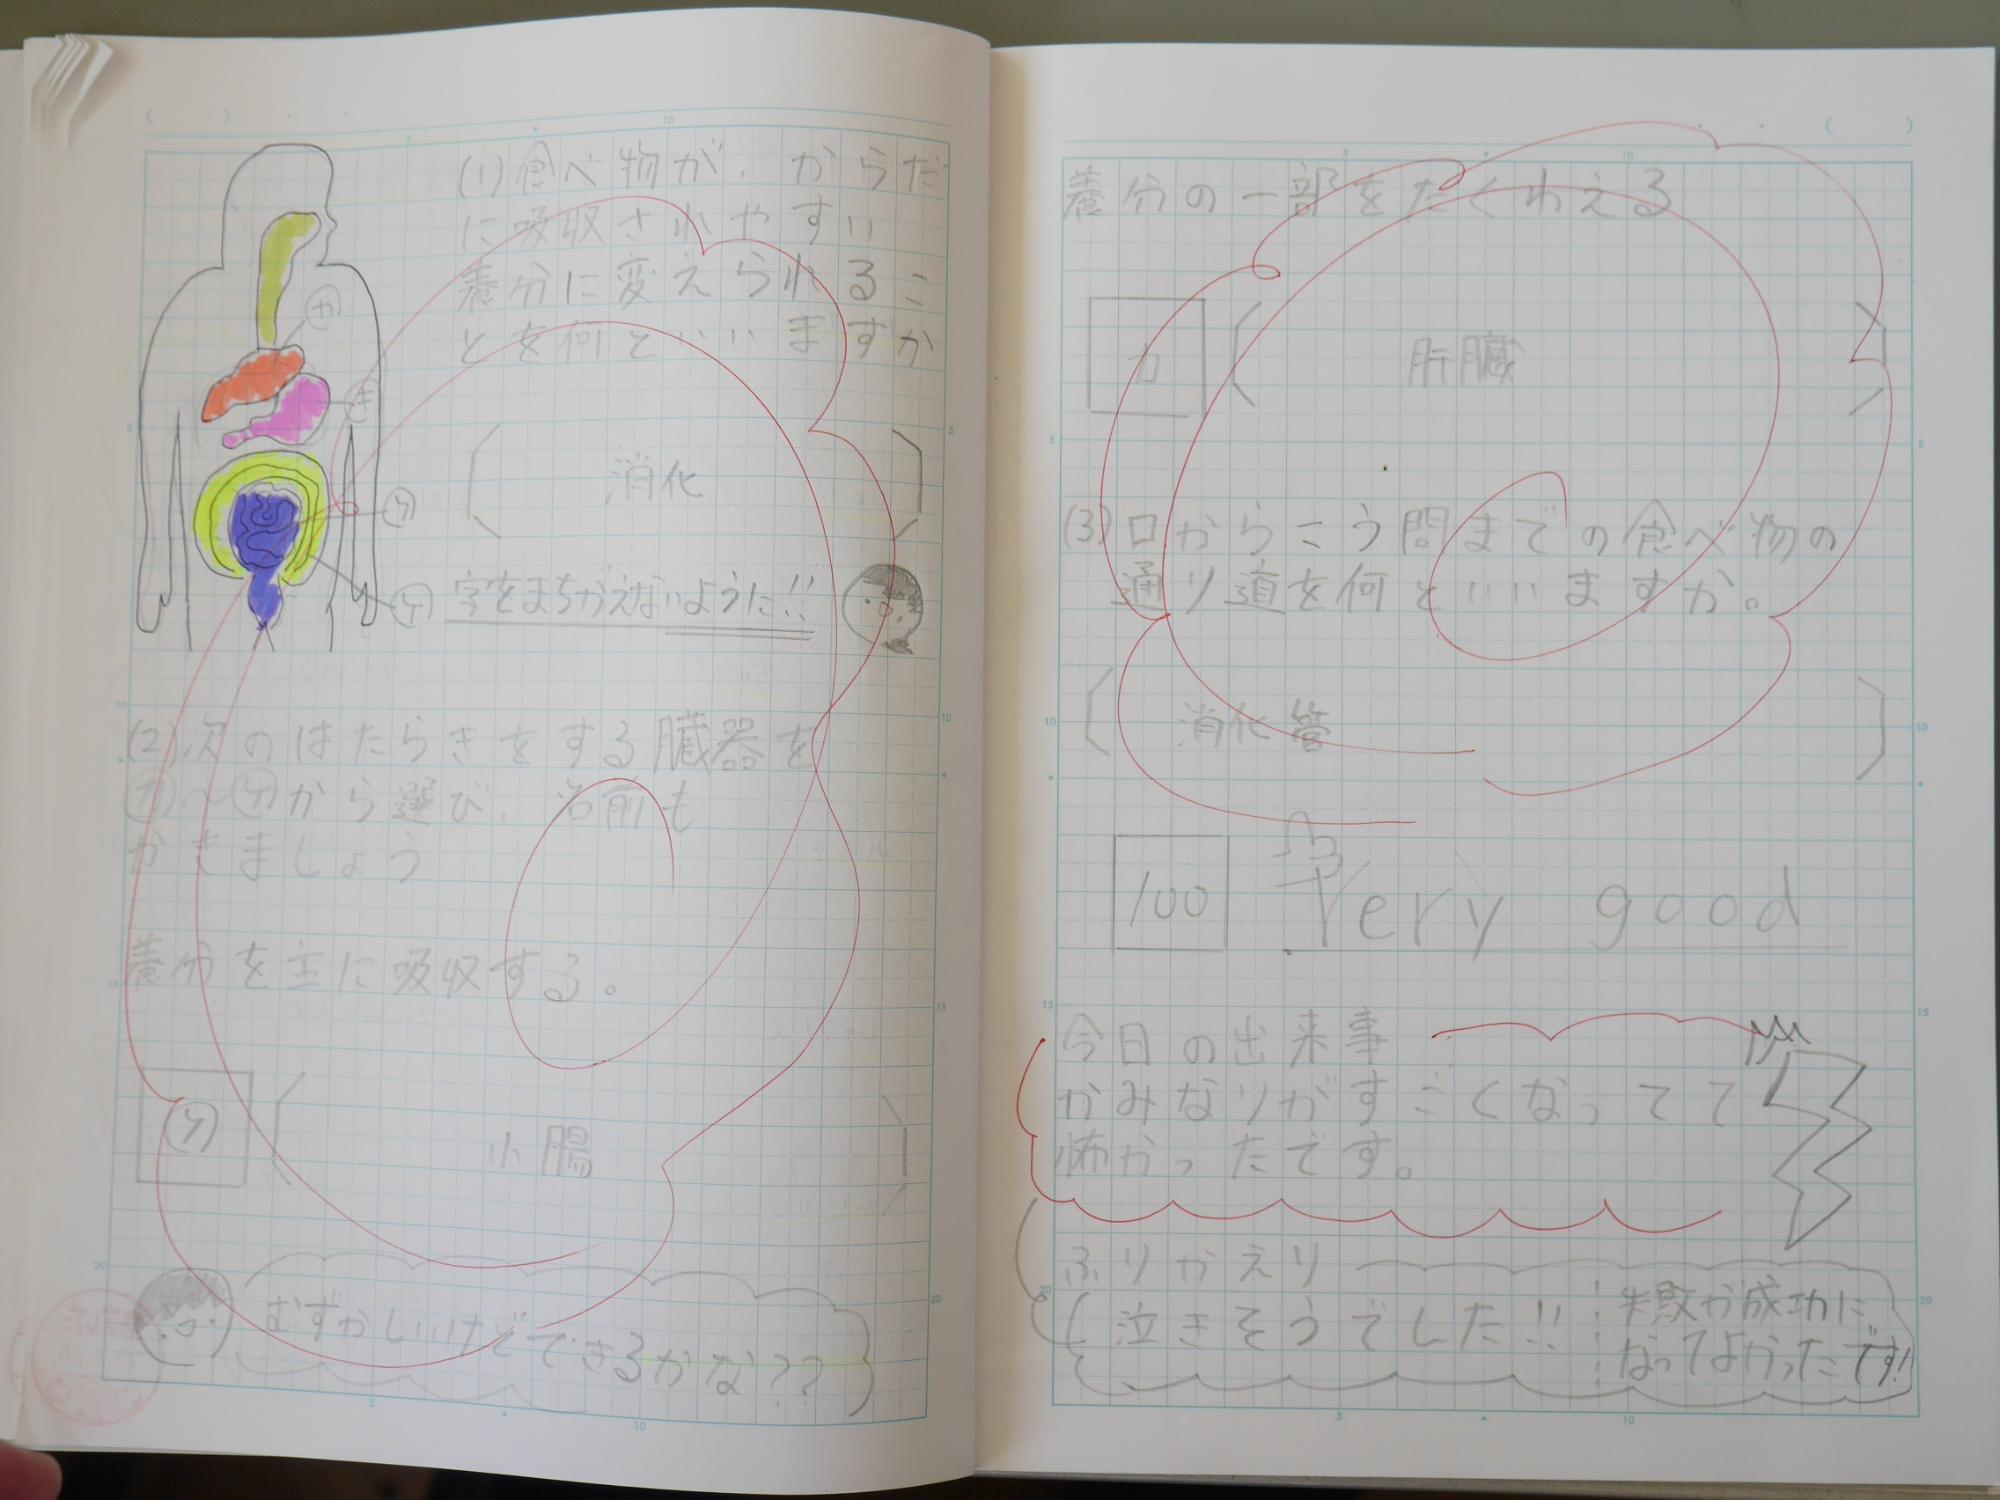 (1)食べ物が、からだ
に吸収されやすい
養分に変えられるこ
とを何といいますか
カ
き
ク
ケ
消化
字をまちがえないように!!
(2)次のはたらきをする臓器を
カ～ケから選び、名前も
かきましょう
養分を主に吸収する。
ケ
小腸
むずかしいけどできるかな??
養分の一部をたくわえる
カ
肝臓
(3)口からこう問までの食べ物の
通り道を何といいますか。
消化管
100 Very good
今日の出来事
かみなりがすごくなってて
怖かったです。
ふりかえり
泣きそうでした!!
失敗が成功に
なってよかったです!
5
10
15
20